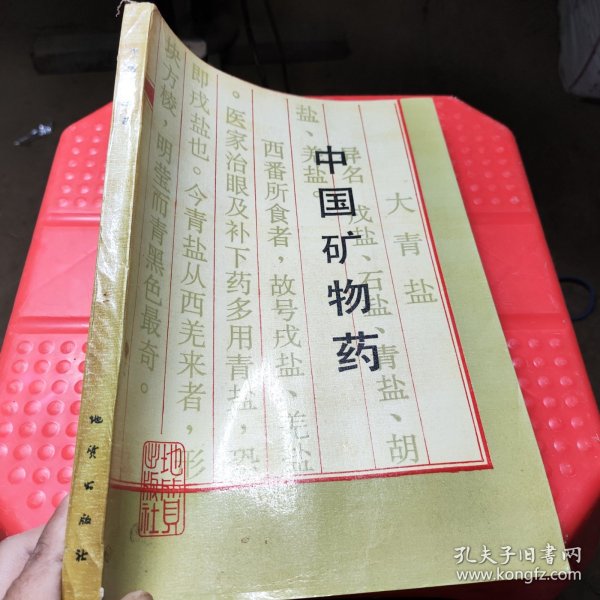 中国矿物药
大青盐
异名 戎盐、石盐、青盐、胡
盐、羌盐。
西番所食者，故号戎盐、羌盐
。医家治眼及补下药多用青盐，恐
即戎盐也。今青盐从西羌来者，形
块方棱，明莹而青黑色最奇。
地质出版社
地质出版社
孔夫子旧书网
www.kongfz.com